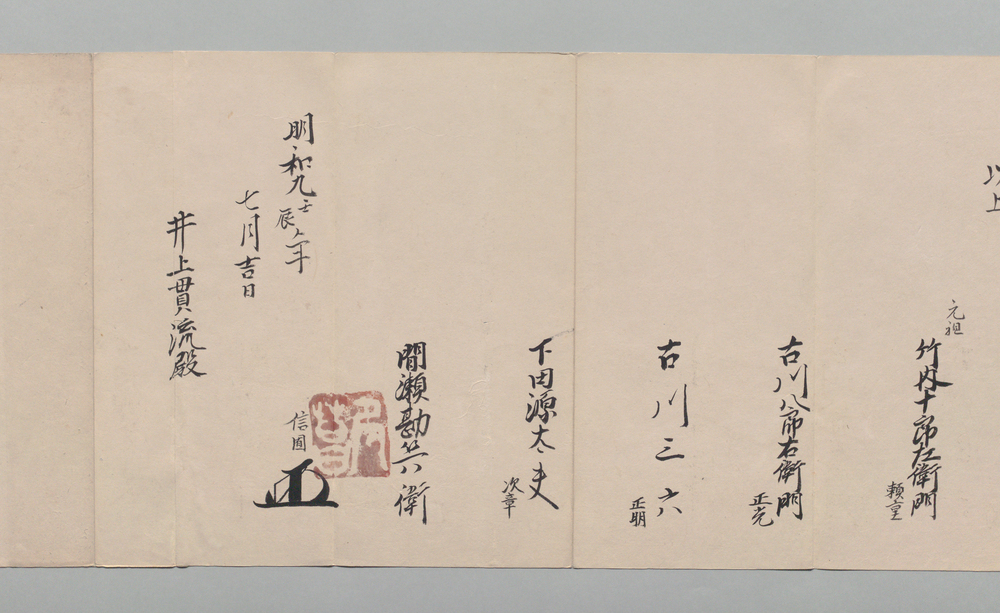 以上
元祖
竹内十郎左衛門
頼重
古川八郎右衛門
正光
古川三六
正明
下田源太夫
次章
間瀬勘
衛
信圓
明和九壬辰年
七月吉日
井上貫流殿